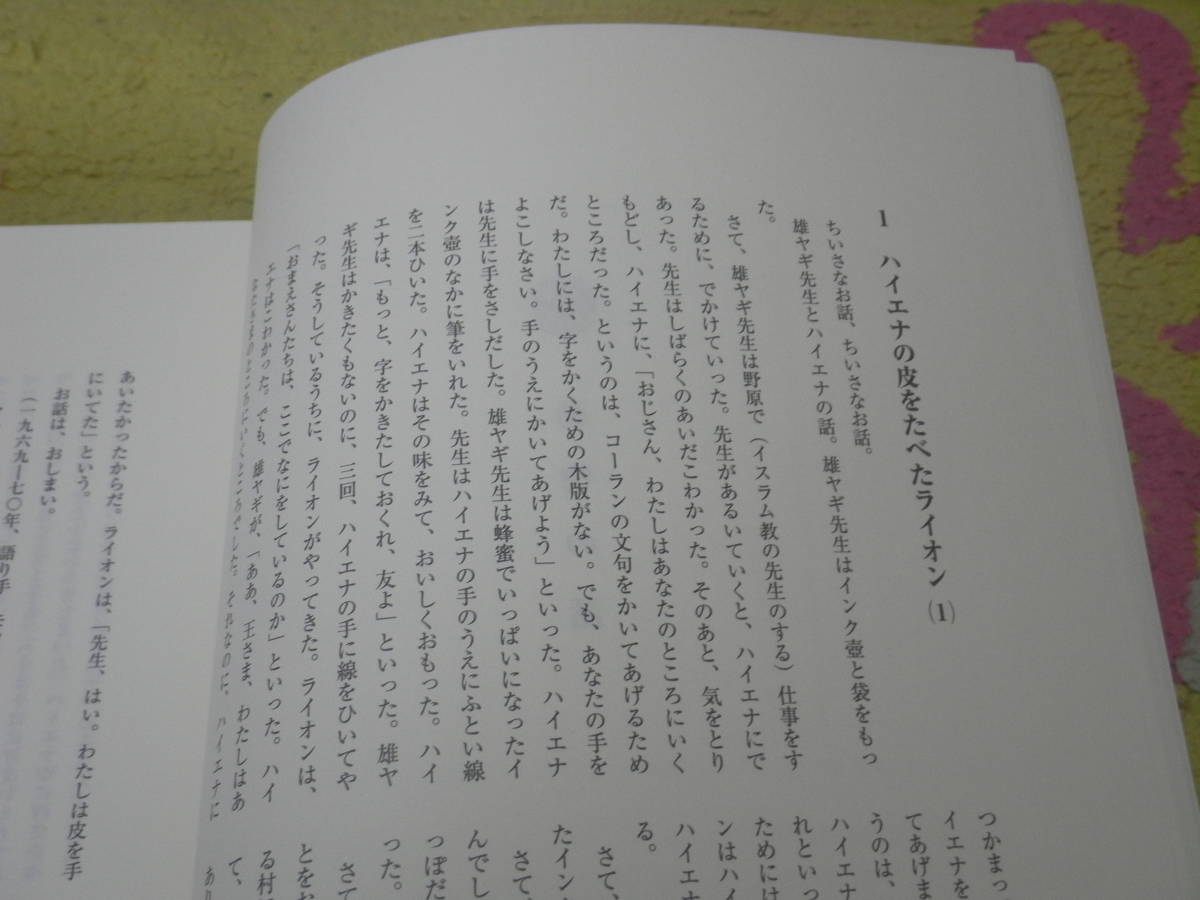 1 ハイエナの皮をたべたライオン (1)
ちいさなお話、ちいさなお話。
雄ヤギ先生とハイエナの話。雄ヤギ先生はインク壺と袋をもっ
た。
さて、雄ヤギ先生は野原で（イスラム教の先生のする）仕事をす
るために、でかけていった。先生があるいていくと、ハイエナにで
あった。先生はしばらくのあいだこわかった。そのあと、気をとり
もどし、ハイエナに、「おじさん、わたしはあなたのところにいく
ところだった。というのは、コーランの文句をかいてあげるため
だ。わたしには、字をかくための木版がない。でも、あなたの手を
よこしなさい。手のうえにかいてあげよう」といった。ハイエナ
は先生に手をさしだした。雄ヤギ先生は蜂蜜でいっぱいになったイ
ンク壺のなかに筆をいれた。先生はハイエナの手のうえにふとい線
を二本ひいた。ハイエナはその味をみて、おいしくおもった。ハイ
エナは、「もっと、字をかきたしておくれ、友よ」といった。雄ヤ
ギ先生はかきたくもないのに、三回、ハイエナの手に線をひいてや
った。そうしているうちに、ライオンがやってきた。ライオンは、
「おまえさんたちは、ここでなにをしているのか」といった。ハイ
エナはこわかった。でも、雄ヤギが、「ああ、王さま、わたしはあ
なたさまのところにいくところでした。それなのに、ハイエナに
つかまっ
イエナを
てあげま
うのは、
ハイエナ
れといっ
ためには
ンはハイ
ハイエナ
る。
さて、
たイン
さて、
んでし
っぽだ
った。
さて
とをお
る村
て、
あり
あいたかったからだ。ライオンは、「先生、はい。わたしは皮を手
にいてた」という。
お話は、おしまい。
（一九六九―七〇年、語り手